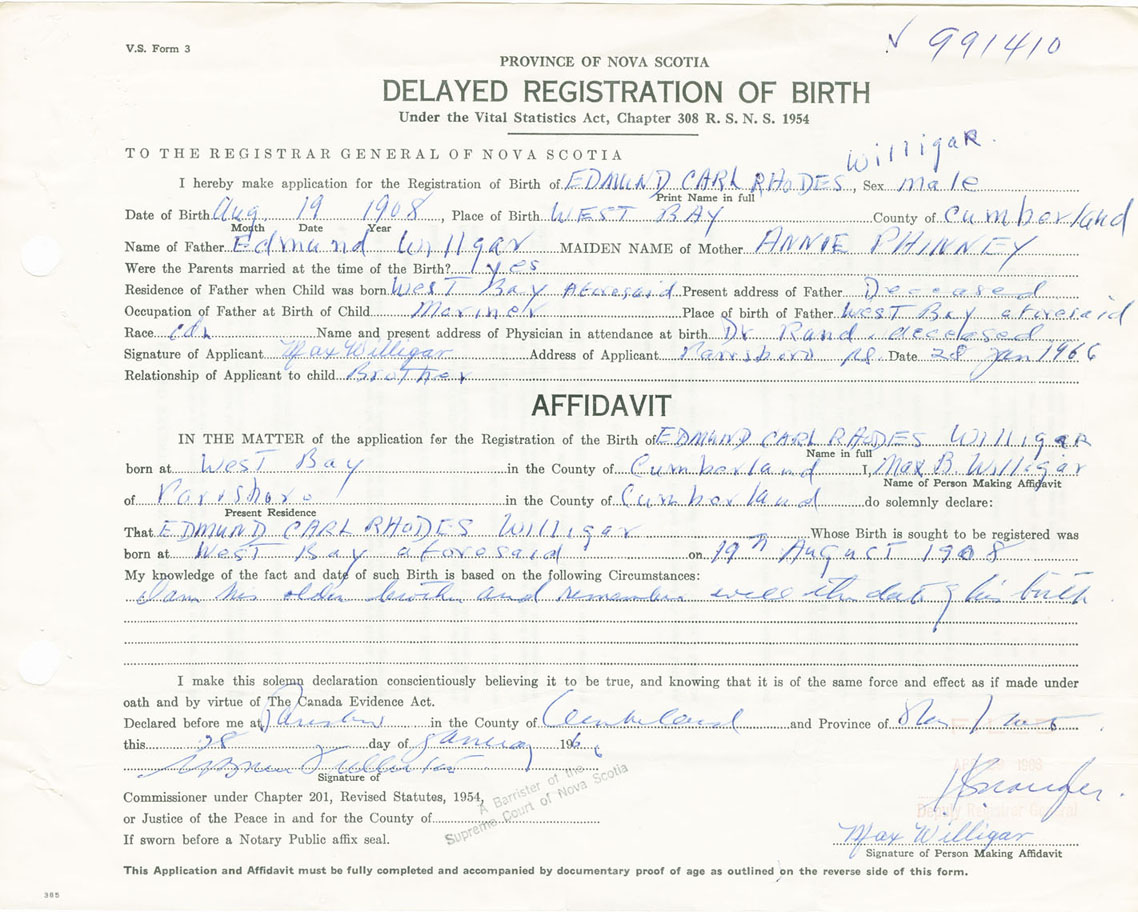 V.S. Form 3
√ 991410
PROVINCE OF NOVA SCOTIA
DELAYED REGISTRATION OF BIRTH
Under the Vital Statistics Act, Chapter 308 R. S. N. S. 1954
TO THE REGISTRAR GENERAL OF NOVA SCOTIA
Willigar.
I hereby make application for the Registration of Birth of EDMUND CARL RHODES, Sex male
Print Name in full
Date of Birth Aug. 19 1908, Place of Birth WEST BAY County of Cumberland
Month Date Year
Name of Father Edmund Willgar MAIDEN NAME of Mother ANNIE PHINNEY
Were the Parents married at the time of the Birth? yes
Residence of Father when Child was born West Bay aforesaid Present address of Father Deceased
Occupation of Father at Birth of Child Mariner Place of birth of Father West Bay aforesaid
Race cdn Name and present address of Physician in attendance at birth Dr Rand. deceased
Signature of Applicant Max Willigar Address of Applicant Parrsboro NS. Date 28 Jan 1966
Relationship of Applicant to child Brother
AFFIDAVIT
IN THE MATTER of the application for the Registration of the Birth of EDMUND CARL RHODES Willigar
Name in full
born at West Bay in the County of Cumberland I, Max B. Willigar
Name of Person Making Affidavit
of Parrsboro in the County of Cumberland do solemnly declare:
Present Residence
That EDMUND CARL RHODES Willigar Whose Birth is sought to be registered was
born at West Bay aforesaid on 19th August 1908
My knowledge of the fact and date of such Birth is based on the following Circumstances:
I am his older brother and remember well the date of his birth
I make this solemn declaration conscientiously believing it to be true, and knowing that it is of the same force and effect as if made under
oath and by virtue of The Canada Evidence Act.
Declared before me at Parrsboro in the County of Cumberland and Province of Nova Scotia
this 28 day of January 1966
Signature of
Commissioner under Chapter 201, Revised Statutes, 1954,
or Justice of the Peace in and for the County of
If sworn before a Notary Public affix seal.
A Barrister of the
Supreme Court of Nova Scotia
1966
Deputy Registrar General
Max Willigar
Signature of Person Making Affidavit
This Application and Affidavit must be fully completed and accompanied by documentary proof of age as outlined on the reverse side of this form.
365